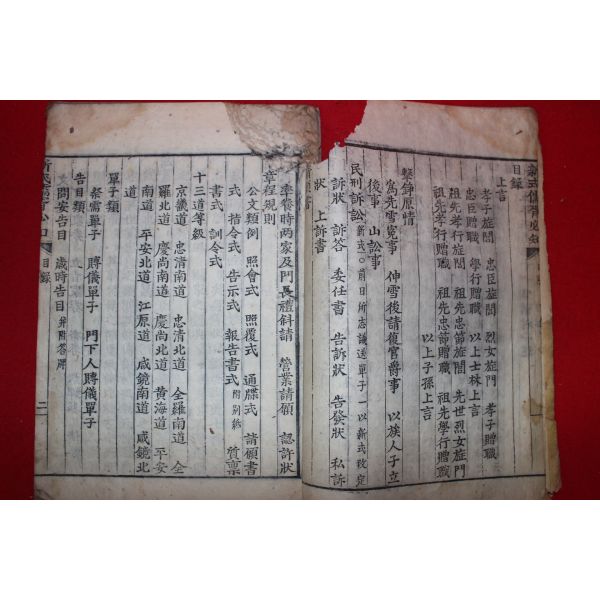 新式儒胥必知
目錄
上言
孝子旌閭 忠臣旌閭 烈女旌門 孝子贈職
忠臣贈職 學行贈職 以上士林上言
祖先孝行旌閭 祖先忠節旌閭 先世烈女旌門
祖先孝行贈職 祖先忠節贈職 祖先學行贈職
以上子孫上言
擊錚原情
爲先雪寃事 伸雪後請復官爵事 以族人子立
後事 山訟事
民刑訴訟 新式○前日所志議送單子一以新式改定
訴狀 訴答 委任書 告訴狀 告發狀 私訴
狀 上訴書
牽餐時兩家及門長禮斜請 營業請願 認許狀
章程規則
公文類例 照會式 照覆式 通牒式 請願書
式 指令式 告示式 報告書式 附別紙 質稟
書式 訓令式
十三道等級
京畿道 忠淸南道 忠淸北道 全羅南道 全
羅北道 慶尙南道 慶尙北道 黃海道 平安
南道 平安北道 江原道 咸鏡南道 咸鏡北
道
單子類
祭需單子 賻儀單子 門下人賻儀單子
告目類
問安告目 歲時告目 幷附答牌
目錄 二